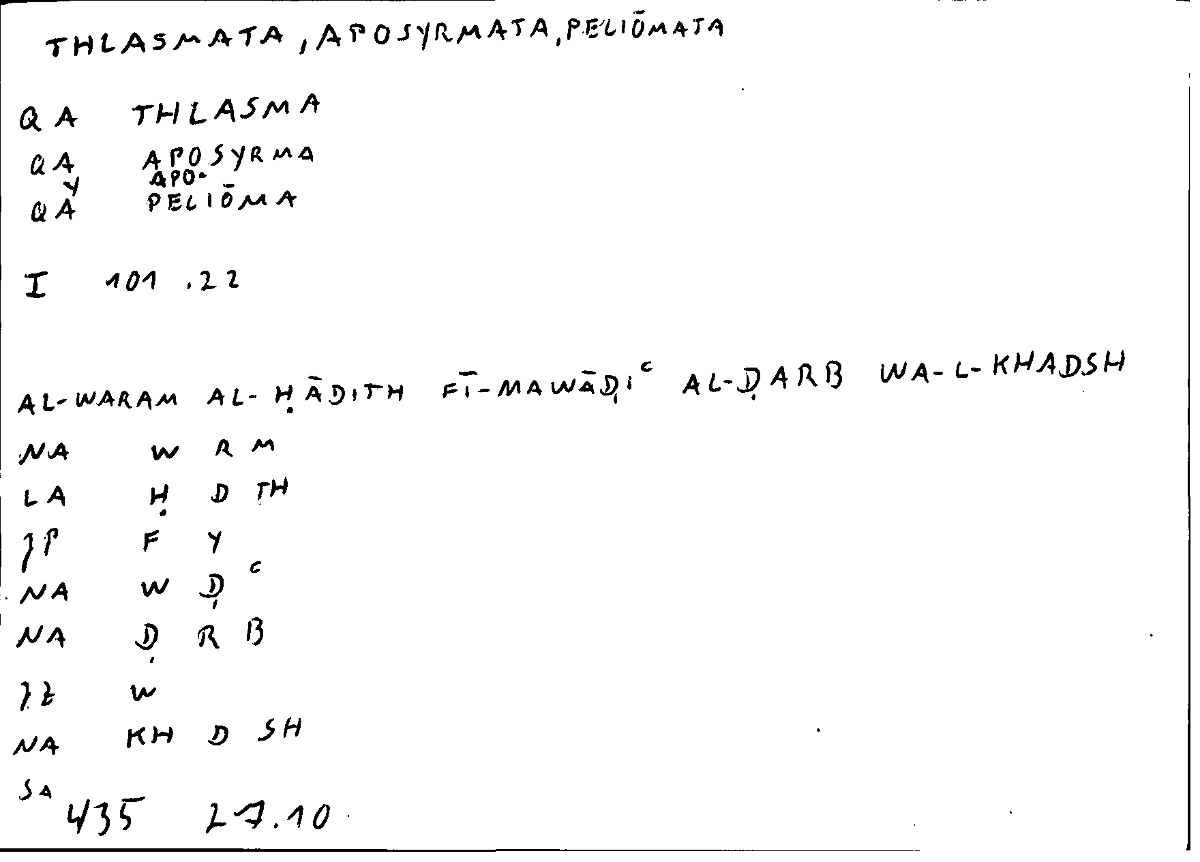 THLASMATA, APOSYRMATA, PELIŌMATA
QA THLASMA
QA APOSYRMA
Y APO-
QA PELIŌMA
I 101 .22
AL-WARAM AL-ḤĀDITH FĪ-MAWĀḌIᶜ AL-ḌARB WA-L-KHADSH
NA W R M
LA Ḥ D TH
F Y
NA W Ḍ ᶜ
NA Ḍ R B
W
NA KH D SH
SA
435 27.10